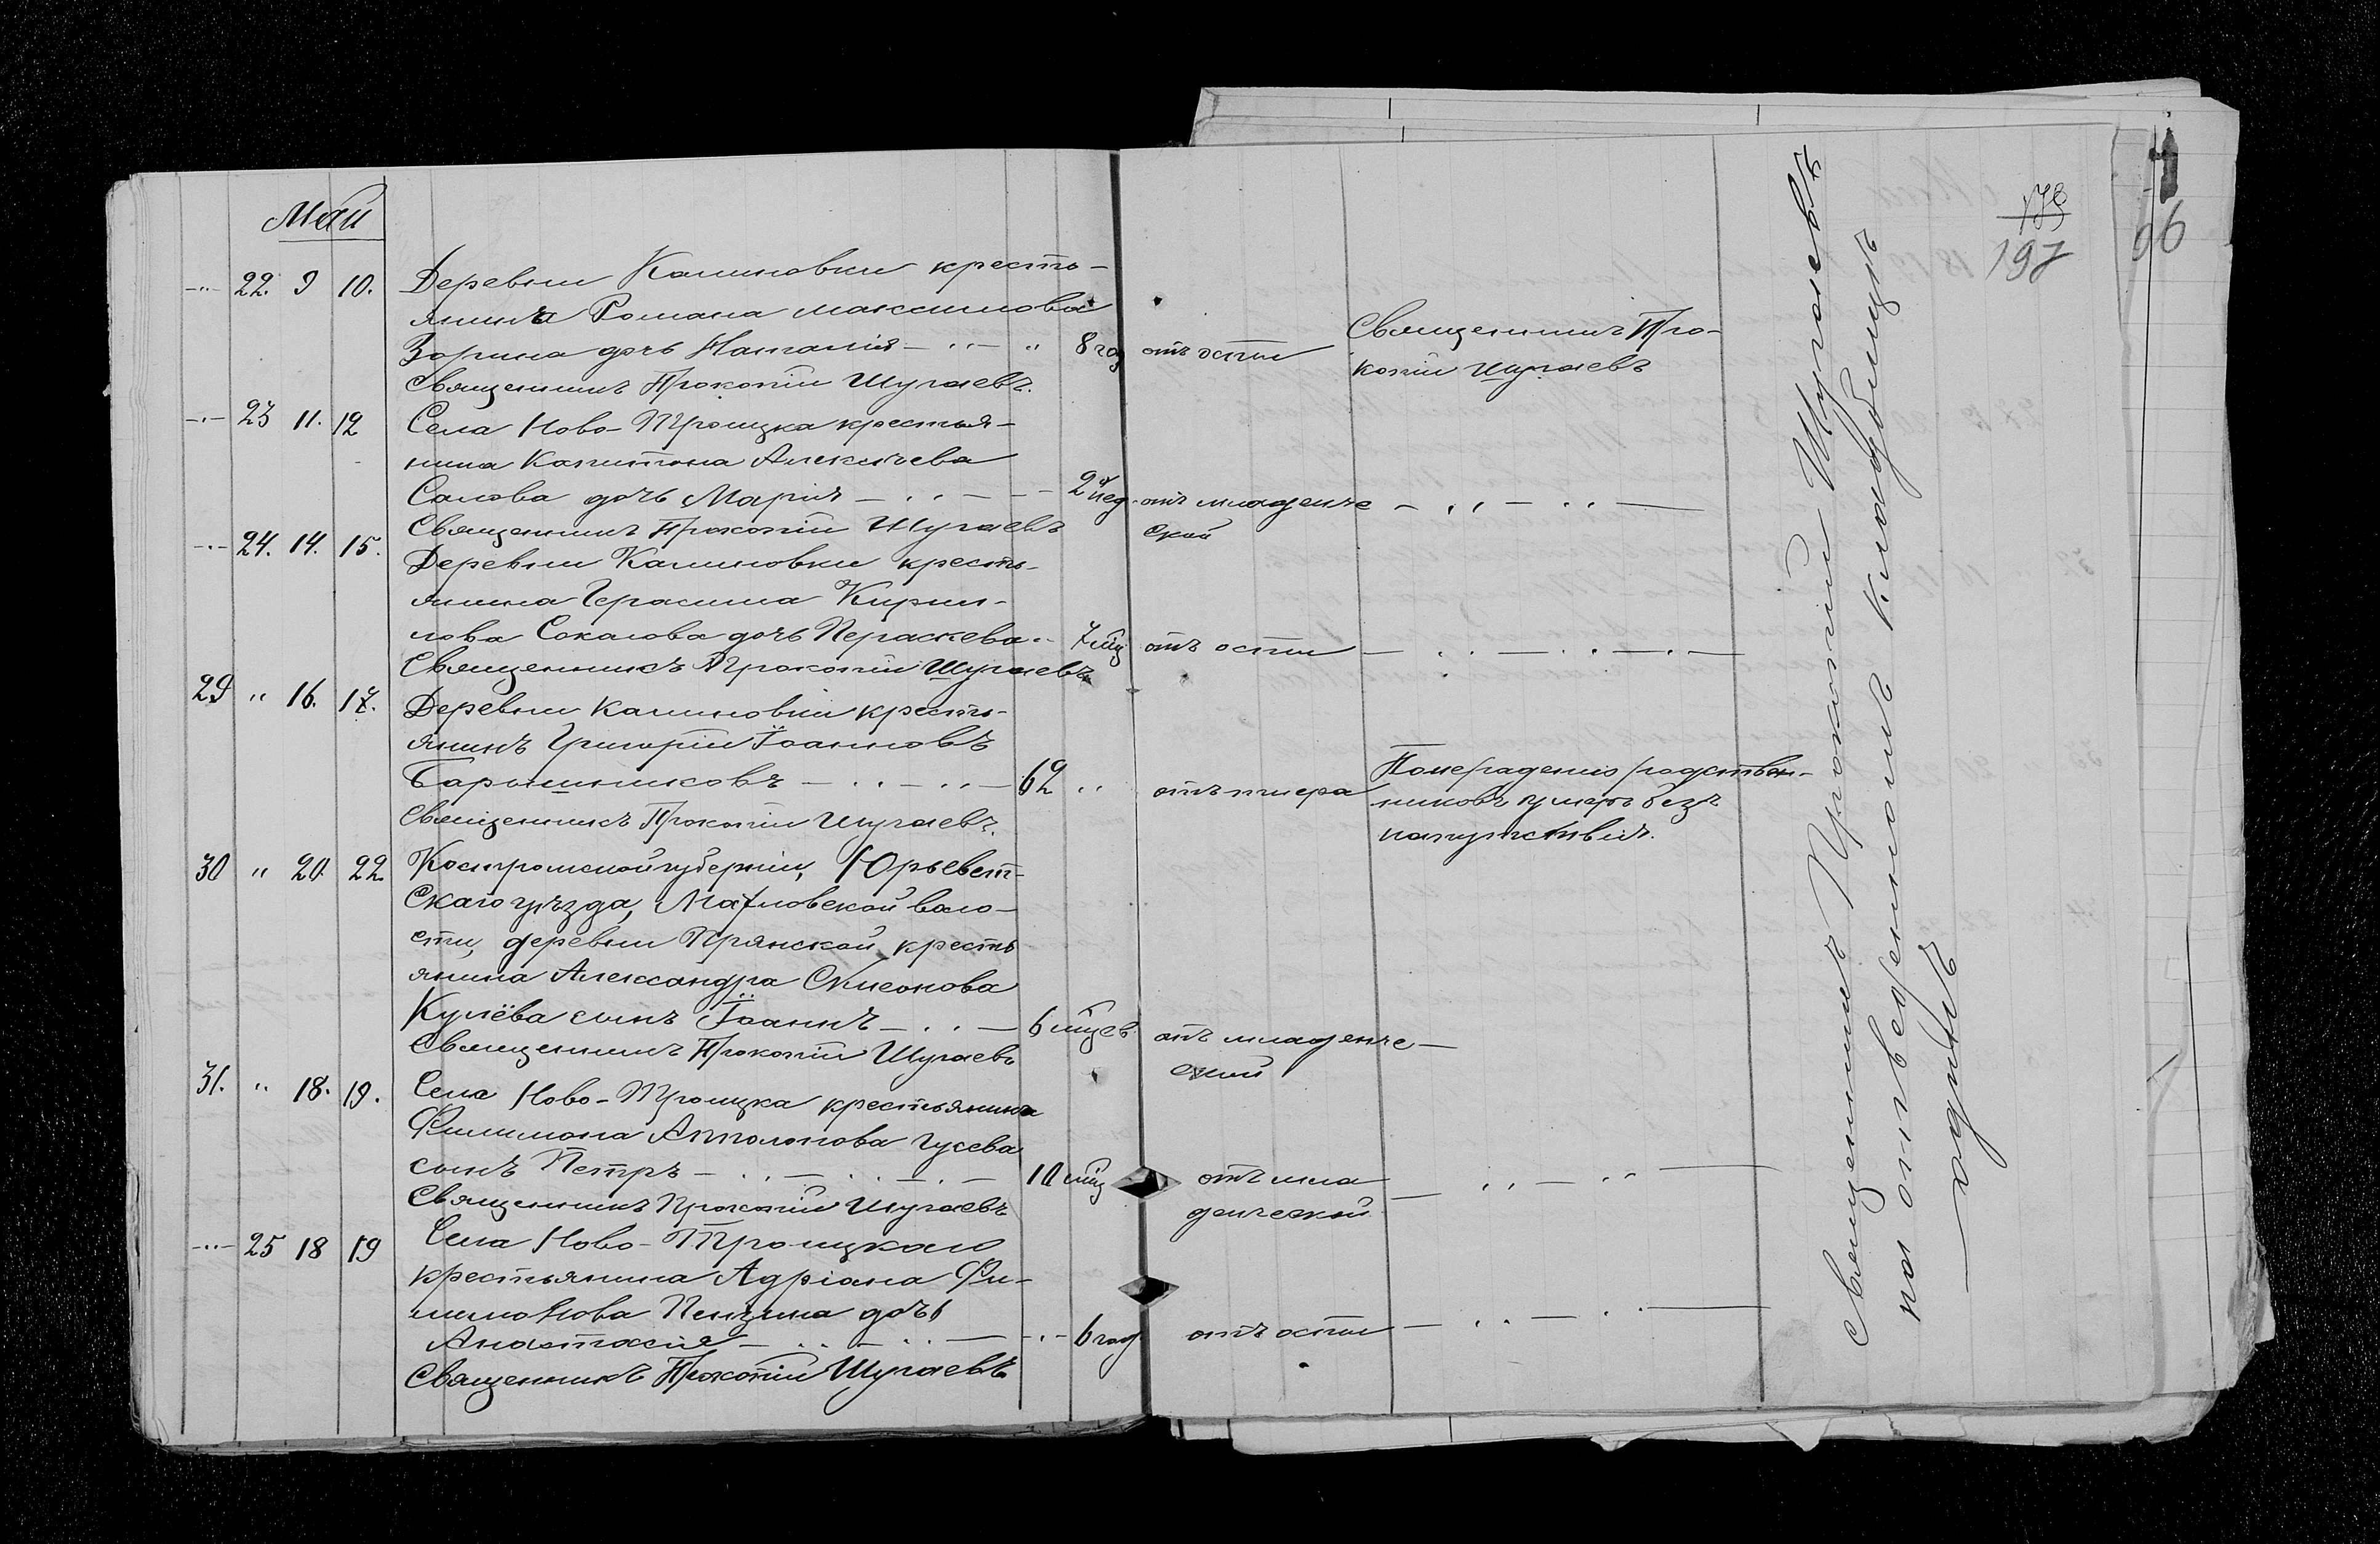 Май
178
197
96
-"- 22. 9 10. Деревни Калиновки кресть-
янина Романа Максимова
Зорина дочь Наталія — " — " 8 год отъ оспы Священникъ Про-
копій Шугаевъ
Священникъ Прокопій Шугаевъ.
-"- 23 11. 12 Села Ново-Троицка крестья-
нина Капитона Алексѣева
Салова дочь Марія — " — — 2 нед. отъ младенче — " — " —
ской
Священникъ Прокопій Шугаевъ
-"- 24. 14. 15. Деревни Калиновки кресть-
янина Герасима Кирил-
лова Соколова дочь Параскева " 7 мѣц отъ оспы — " — " — " —
Священникъ Прокопій Шугаевъ
29 " 16. 17. Деревни Калиновки кресть-
янинъ Григорій Іоанновъ
Барышниковъ — " — " — 62 " отъ тифа По нераденію родствен-
никовъ умеръ безъ
напутствія.
Священникъ Прокопій Шугаевъ.
30 " 20. 22 Костромской губерніи, Юрьевет-
скаго уѣзда, воло-
сти, деревни кресть
янина Александра Симонова
Кулёва сынъ Іоаннъ — " — 6 мѣцев отъ младенче —
ской
Священникъ Прокопій Шугаевъ
31. " 18. 19. Села Ново-Троицка крестьянина
Филимона Апполонова Гусева
сынъ Петръ — " — " — " — 10 мѣц отъ мла
денческой — " — " —
Священникъ Прокопій Шугаевъ
-"- 25 18 19 Села Ново-Троицкаго
крестьянина Адріана Фи-
лимонова дочь
Анастасія — " — " — -"- 6 год отъ оспы — " — " —
Священникъ Прокопій Шугаевъ
Священникъ Прокопій Шугаевъ
на отведенномъ кладбищѣ